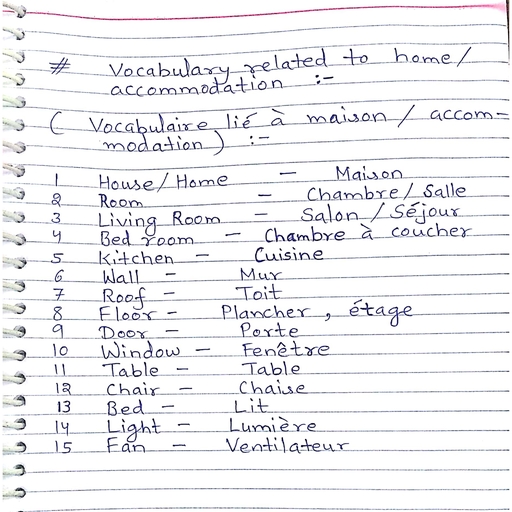 # Vocabulary related to home/
accommodation :-
( Vocabulaire lié à maison / accom-
modation) :-
1 House/Home - Maison
2 Room - Chambre/Salle
3 Living Room - Salon/Séjour
4 Bed room - Chambre à coucher
5 Kitchen - Cuisine
6 Wall - Mur
7 Roof - Toit
8 Floor - Plancher, étage
9 Door - Porte
10 Window - Fenêtre
11 Table - Table
12 Chair - Chaise
13 Bed - Lit
14 Light - Lumière
15 Fan - Ventilateur